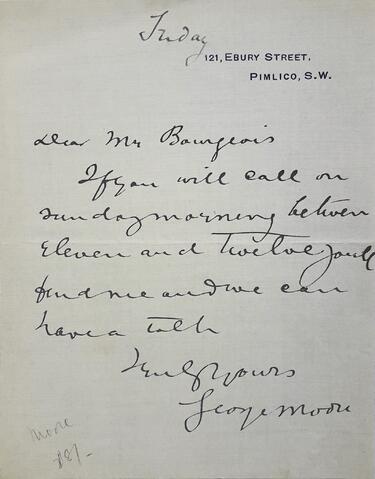 Friday
121, EBURY STREET,
PIMLICO, S.W.
Dear Mr Bourgeois
If you will call on
sunday morning between
eleven and twelve you'll
find me and we can
have a talk
Truly Yours
George Moore
Moore
18/-